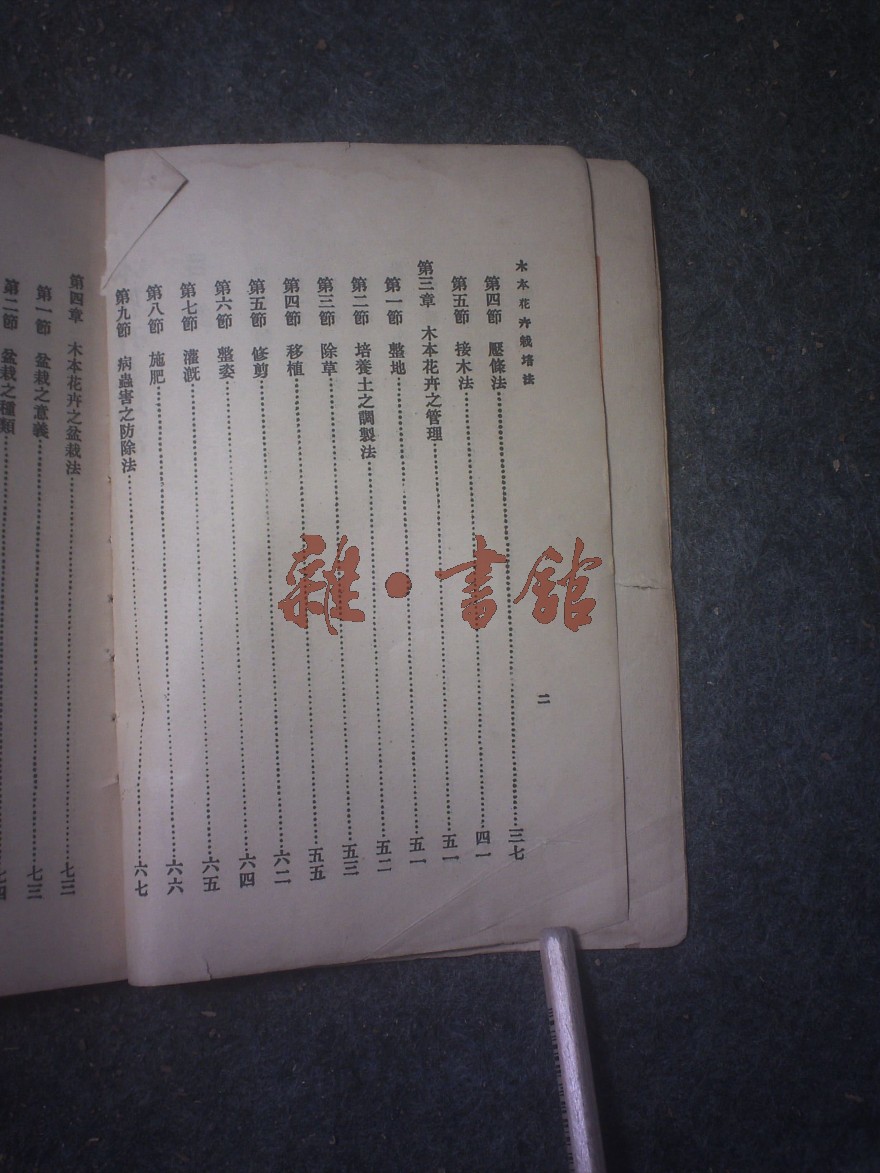 木本花卉栽培法
二
第四節 壓條法……三七
第五節 接木法……四一
第三章 木本花卉之管理……五一
第一節 整地……五一
第二節 培養土之調製法……五二
第三節 除草……五三
第四節 移植……五五
第五節 修剪……六二
第六節 整姿……六四
第七節 灌溉……六五
第八節 施肥……六六
第九節 病蟲害之防除法……六七
第四章 木本花卉之盆栽法……七三
第一節 盆栽之意義……七三
第二節 盆栽之種類……七四
雜·書館